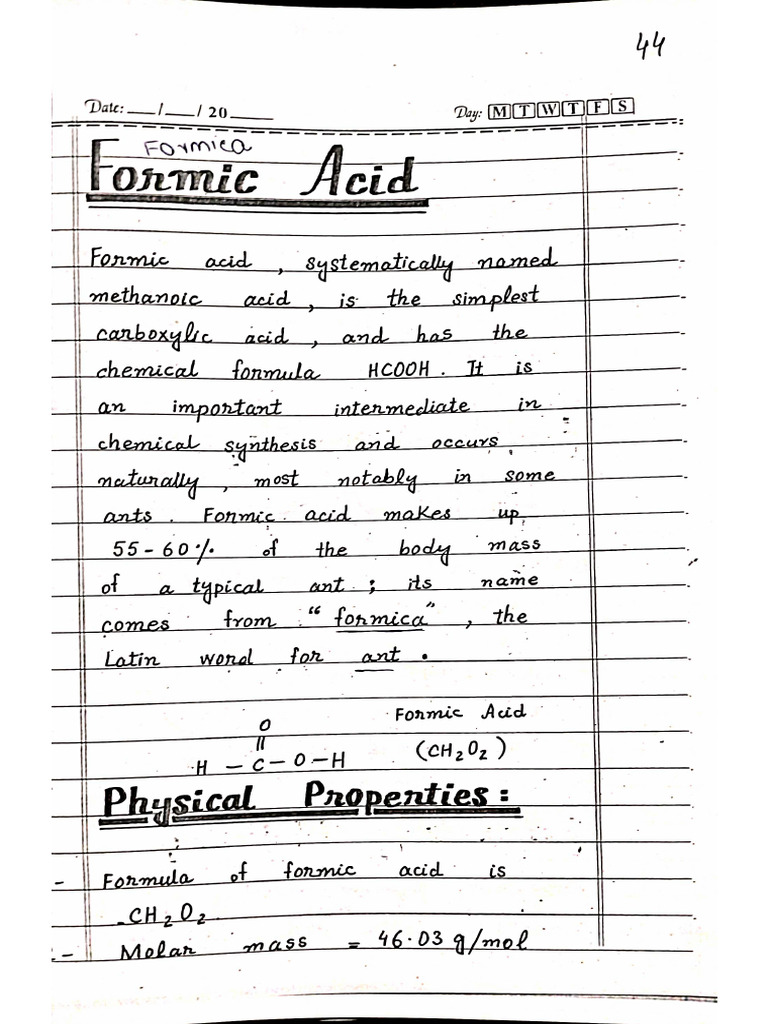 44
Date: ___/___/ 20 ____ Day: M T W T F S
Formica
Formic Acid
Formic acid , systematically named
methanoic acid , is the simplest
carboxylic acid , and has the
chemical formula HCOOH . It is
an important intermediate in
chemical synthesis and occurs
naturally , most notably in some
ants . Formic acid makes up
55-60% of the body mass
of a typical ant ; its name
comes from "formica" , the
Latin word for ant .
Formic Acid
O
||
H - C - O - H (CH₂O₂)
Physical Properties :
- Formula of formic acid is
CH₂O₂
- Molar mass = 46.03 g/mol